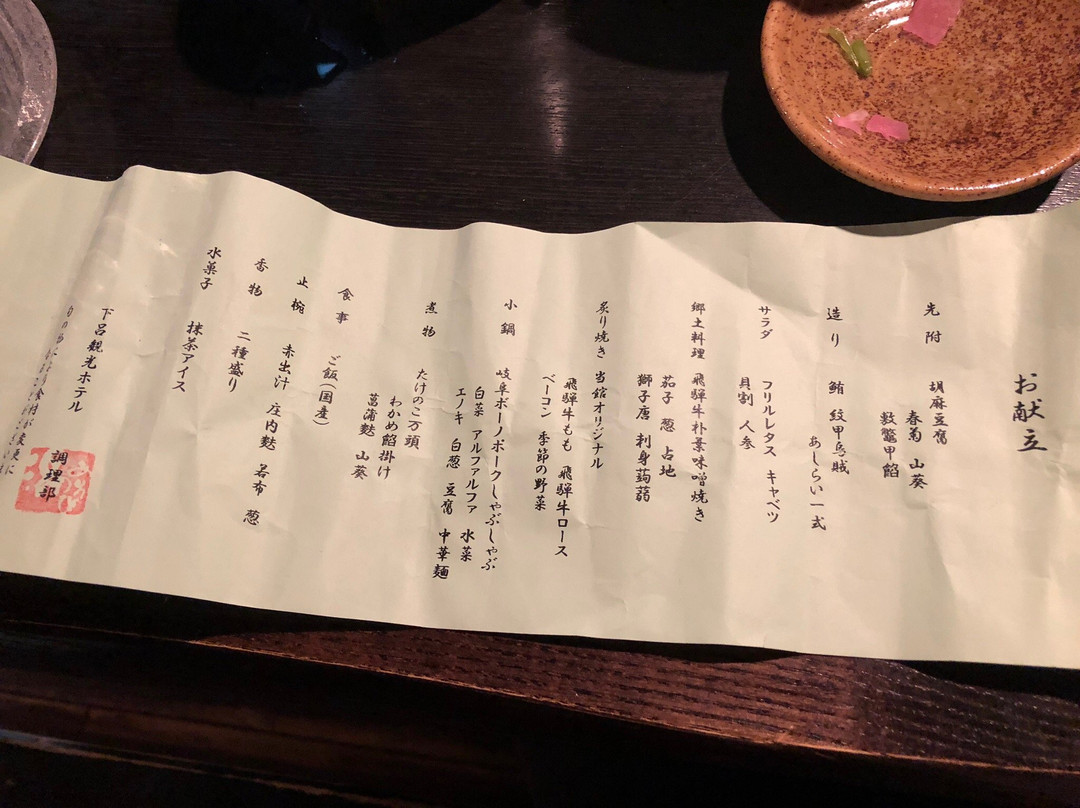 お献立
先附 胡麻豆腐
春菊 山葵
敷鼈甲餡
造り 鮪 紋甲烏賊
あしらい一式
サラダ フリルレタス キャベツ
貝割 人参
郷土料理 飛騨牛朴葉味噌焼き
茄子 葱 占地
獅子唐 刺身蒟蒻
炙り焼き 当館オリジナル
飛騨牛もも 飛騨牛ロース
ベーコン 季節の野菜
小鍋 岐阜ボーノポークしゃぶしゃぶ
白菜 アルファルファ 水菜
エノキ 白葱 豆腐 中華麺
煮物 たけのこ万頭
わかめ餡掛け
菖蒲麩 山葵
食事 ご飯(国産)
止椀 赤出汁 庄内麩 若布 葱
香物 二種盛り
水菓子 抹茶アイス
下呂観光ホテル
調理部